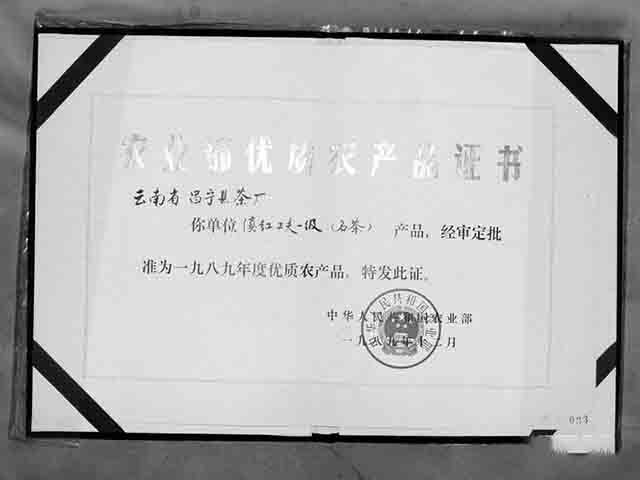 农业部优质农产品证书
云南省昌宁县茶厂
你单位滇红工夫一级（石茶）产品，经审定批
准为一九八九年度优质农产品，特发此证。
中华人民共和国农业部
一九八九年十二月
083